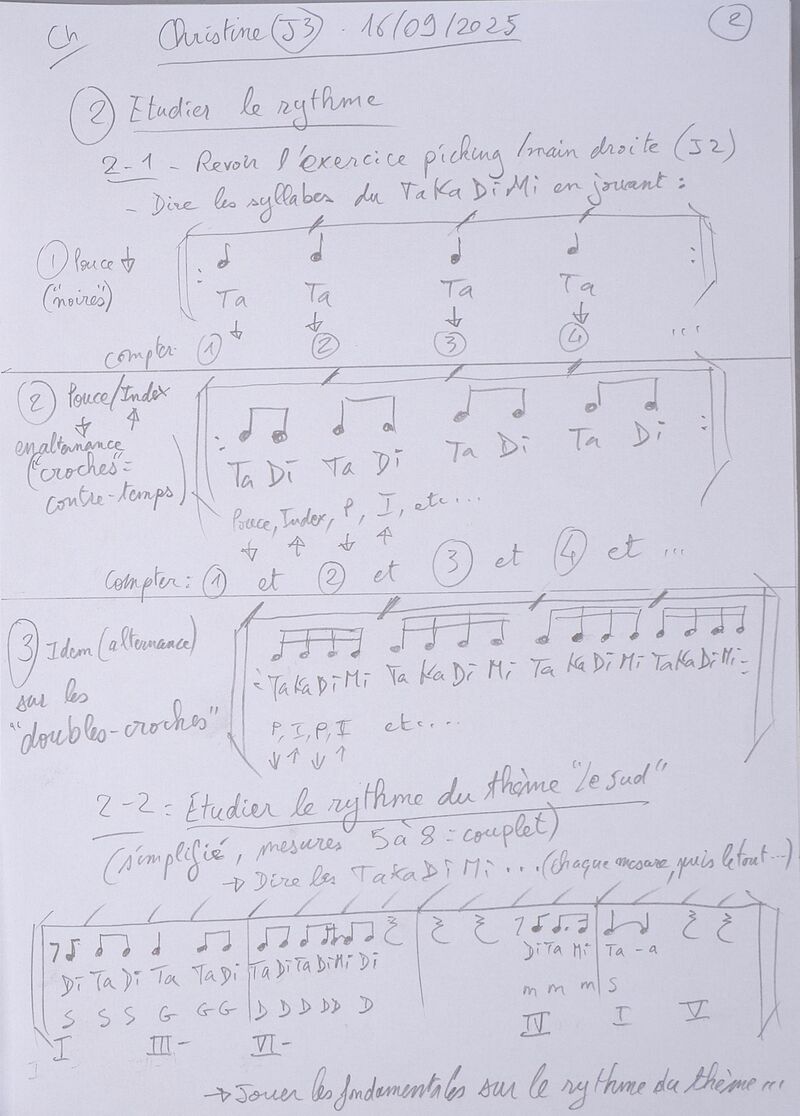 Ch Christine (J3) . 16/09/2025 2
2 Etudier le rythme
2-1 - Revoir l'exercice picking /main droite (J2)
- Dire les syllabes du TaKaDiMi en jouant :
1 Pouce ↓
("noires")
Ta Ta Ta Ta
↓ ↓ ↓ ↓
compter 1 2 3 4 ...
2 Pouce/Index
↓ ↑
en alternance
("croches" =
contre-temps)
Ta Di Ta Di Ta Di Ta Di
Pouce, Index, P, I, etc...
↓ ↑ ↓ ↑
compter : 1 et 2 et 3 et 4 et ...
3 Idem (alternance)
sur les
"doubles-croches"
TaKaDiMi Ta Ka Di Mi Ta Ka Di Mi TaKaDiMi
P, I, P, I etc...
↓ ↑ ↓ ↑
2-2 = Etudier le rythme du thème "le sud"
(simplifié, mesures 5 à 8 = couplet)
→ Dire les TaKaDiMi ... (chaque mesure, puis le tout ...)
Di Ta Di Ta Ta Di Ta Di Ta Di Mi Di Di Ta Mi Ta -a
S S S G G G D D D D D D m m m S
I III- VI- IV I V
→ Jouer les fondamentales sur le rythme du thème ...